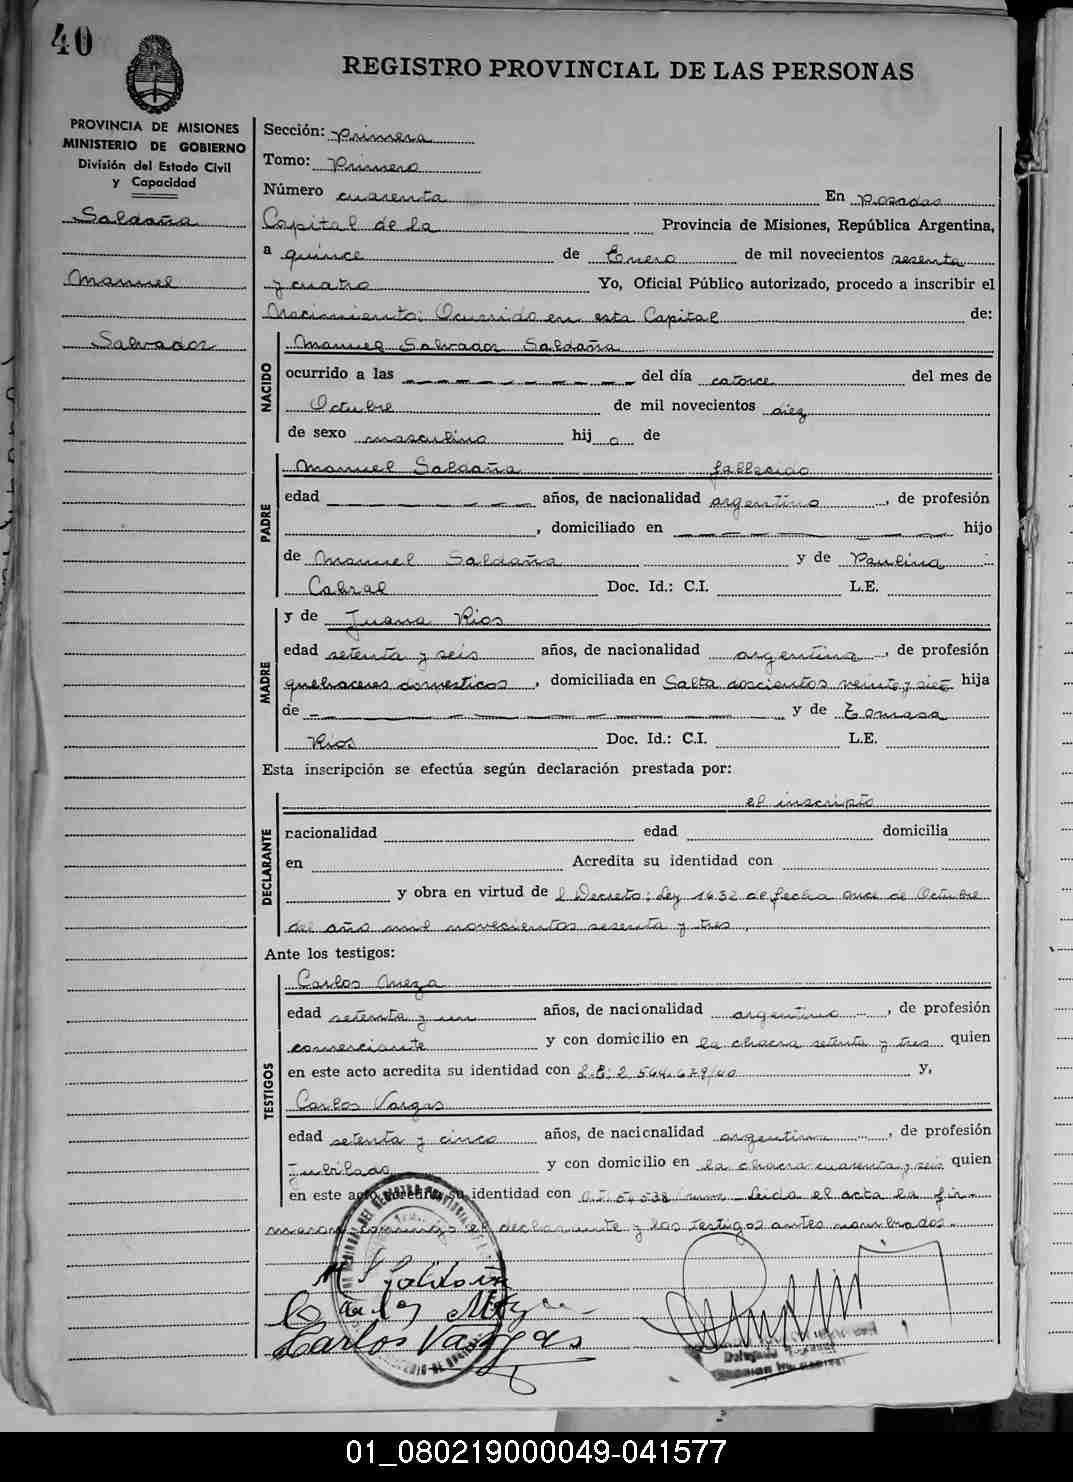 40
REGISTRO PROVINCIAL DE LAS PERSONAS
PROVINCIA DE MISIONES
MINISTERIO DE GOBIERNO
División del Estado Civil
y Capacidad
Saldaña
Manuel
Salvador
Sección: Primera
Tomo: Primero
Número cuarenta En Posadas
Capital de la Provincia de Misiones, República Argentina,
a quince de Enero de mil novecientos sesenta
y cuatro Yo, Oficial Público autorizado, procedo a inscribir el
Nacimiento: Ocurrido en esta Capital de:
NACIDO
Manuel Salvador Saldaña
ocurrido a las del día catorce del mes de
Octubre de mil novecientos diez
de sexo masculino hij o de
PADRE
Manuel Saldaña fallecido
edad años, de nacionalidad argentino, de profesión
, domiciliado en hijo
de Manuel Saldaña y de Paulina
Cabral Doc. Id.: C.I. L.E.
MADRE
y de Juana Rios
edad setenta y seis años, de nacionalidad argentina, de profesión
quehaceres domesticos, domiciliada en Salta doscientos veinte y siete hija
de y de Tomasa
Rios Doc. Id.: C.I. L.E.
Esta inscripción se efectúa según declaración prestada por:
DECLARANTE
el inscripto
nacionalidad edad domicilia
en Acredita su identidad con
y obra en virtud de l Decreto: Ley 1632 de fecha once de Octubre
del año mil novecientos sesenta y tres.
Ante los testigos:
TESTIGOS
Carlos Meza
edad setenta y un años, de nacionalidad argentino, de profesión
comerciante y con domicilio en la chacra setenta y tres quien
en este acto acredita su identidad con L.E: 2.564.679/40 y,
Carlos Vargas
edad setenta y cinco años, de nacionalidad argentino, de profesión
Jubilado y con domicilio en la chacra cuarenta y seis quien
en este acto acredita su identidad con C.I. 54538 Leida el acta la fir-
maron conmigo el declarante y los testigos antes nombrados.
M S Saldaña
Carlos Meza
Carlos Vargas
Delegado
01_080219000049-041577